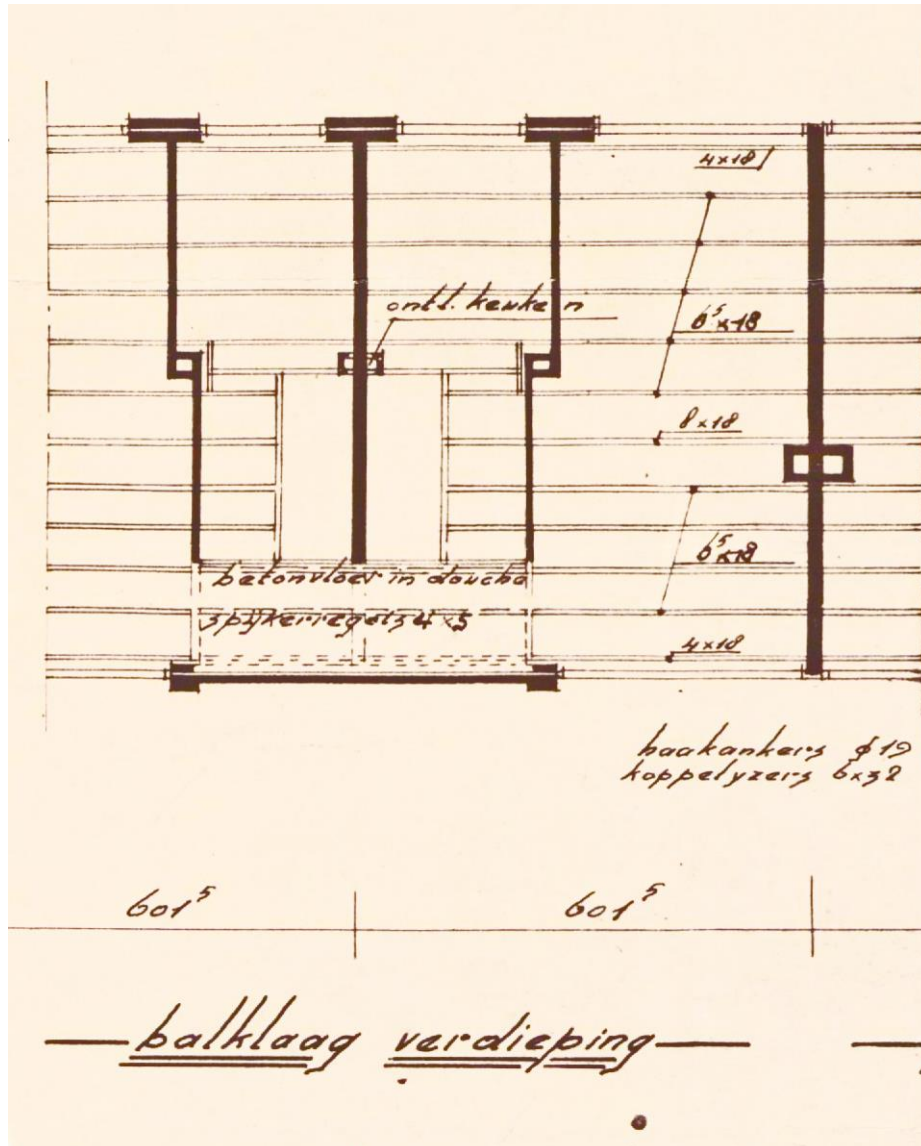 4x18
ontl. keuken
6⁵x18
8x18
6⁵x18
betonvloer in douche
spijkerregels 4x5
4x18
haakankers ϕ19
koppelyzers 6x32
601⁵ 601⁵
balklaag verdieping